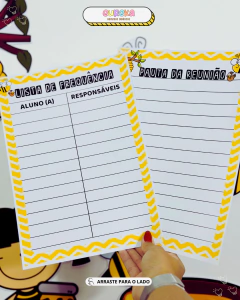 LISTA DE FREQUÊNCIA
ALUNO (A) RESPONSÁVEIS
PAUTA DA REUNIÃO
ARRASTE PARA O LADO